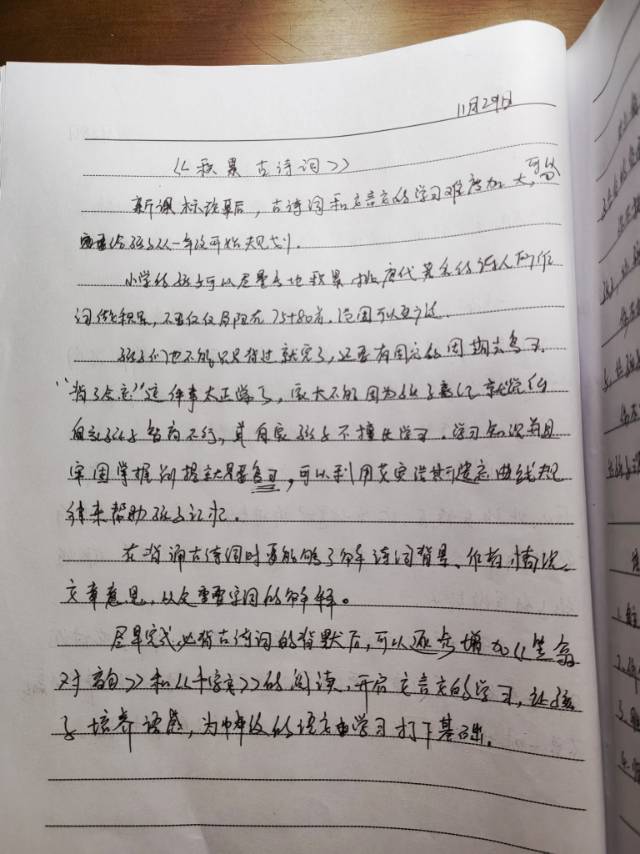 11月29日
《积累古诗词》
新课标改革后，古诗词和文言文的学习难度加大，可以
孩子从一年级开始规划。
小学的孩子可以尽量多地积累，挑唐代著名的诗人的作
词做积累，不要仅仅局限在75+80首，范围可以更广泛。
孩子们也不能只只背过就完了，还要有固定的周期去复习，
“背了会忘”这件事太正常了，家大不能因为孩子忘记就说
自家孩子智商不行，真自家孩子不擅长学习。学习知识并且
牢固掌握的根本就是要复习，可以利用艾宾浩斯遗忘曲线规
律来帮助孩子记忆。
在背诵古诗词时要能够了解诗词背景、作者情况、
文章意思，以及重要字词的解释。
尽早完成必背古诗词的背默后，可以逐步增加《笠翁
对韵》和《千字文》的阅读，开启文言文的学习，让孩
子培养语感，为中年级的语文学习打下基础。